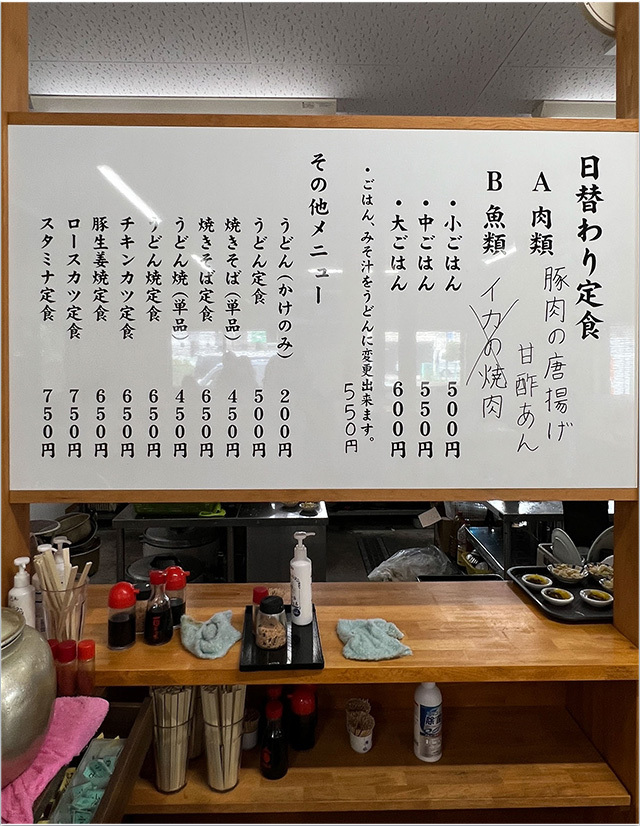 日替わり定食
A 肉類 豚肉の唐揚げ
甘酢あん
B 魚類 イカの焼肉
・小ごはん 500円
・中ごはん 550円
・大ごはん 600円
・ごはん、みそ汁をうどんに変更出来ます。
550円
その他メニュー
うどん(かけのみ) 200円
うどん定食 500円
焼きそば(単品) 450円
焼きそば定食 650円
うどん焼(単品) 450円
うどん焼定食 650円
チキンカツ定食 650円
豚生姜焼定食 650円
ロースカツ定食 750円
スタミナ定食 750円